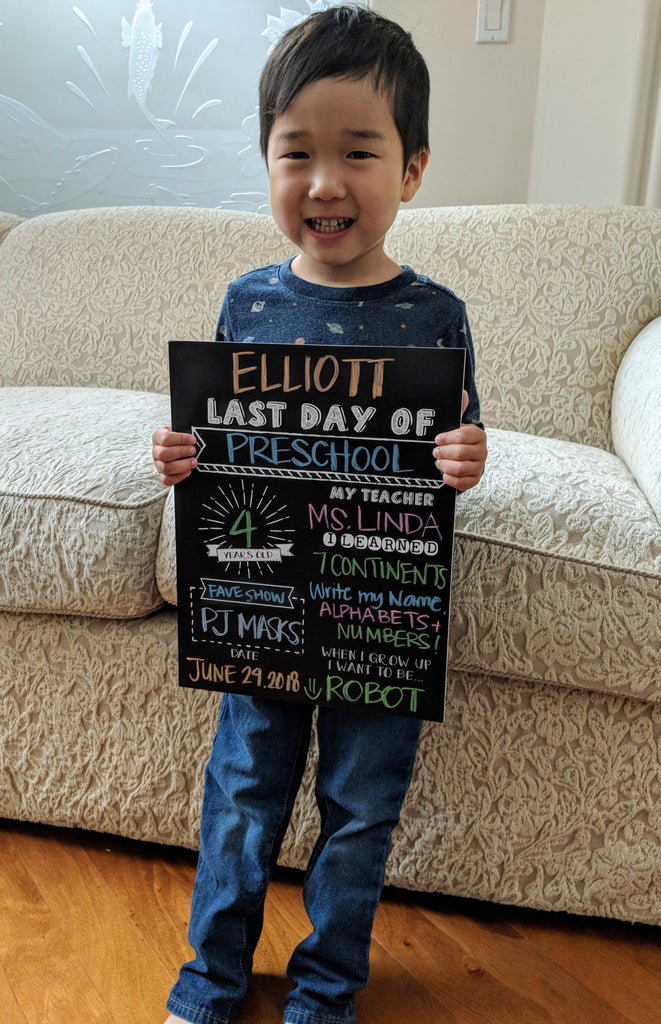 ELLIOTT
LAST DAY OF
PRESCHOOL
4
YEARS OLD
FAVE SHOW
PJ MASKS
DATE
JUNE 29.2018
MY TEACHER
MS. LINDA
I LEARNED
7 CONTINENTS
Write my Name,
ALPHABETS +
NUMBERS!
WHEN I GROW UP
I WANT TO BE...
ROBOT